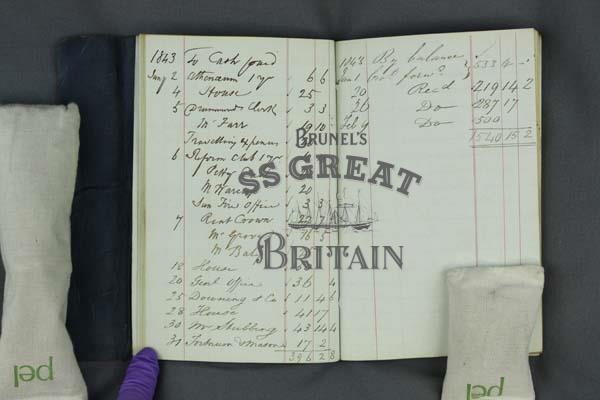 1843 To Cash paid
Jany 2 Athenæum 1 yr 6 6
4 House 25
5 Drummonds Clerk 3 3
Mr Farr 19 10
Travelling expenses
6 Reform Club 1 yr
Petty
20
Sun Fire Office 3 3
7 Rent Crown 22 7
Mr Grove 16 5
Mr
18 House
20 Genl Office 36 4
25 Downing & Co 11 4 6
28 House 41 17
30 Mr Stebbing 43 14 4
31 Fortnum & Mason 17 2
396 2 8
1843 By balance
Jan 1 533 4 -
20 Recd 219 14 2
26 Do 287 17
Feb 9 Do 500
1540 15 2
BRUNEL'S
SS GREAT
BRITAIN
pel
pel